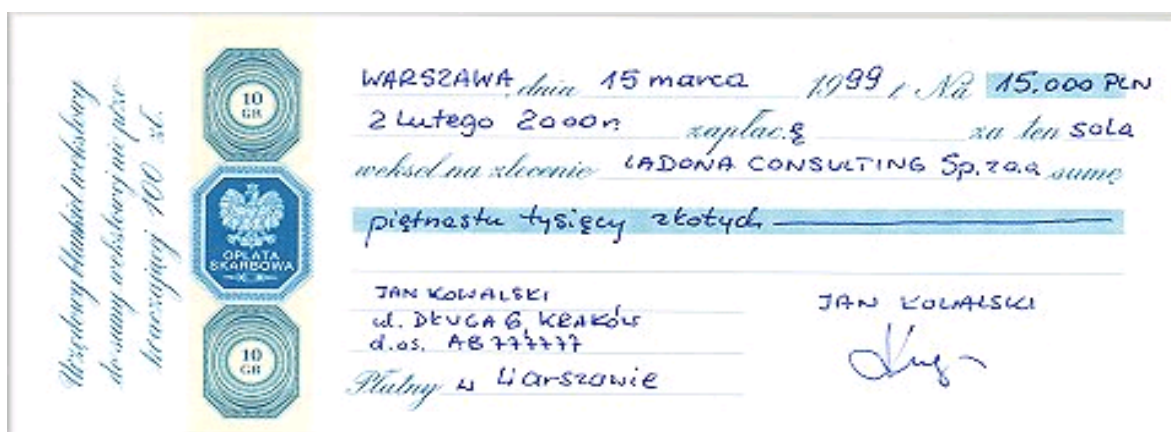 Urzędowy blankiet wekslowy
do sumy wekslowej nie prze-
kraczającej 100 zł.
10
GR
OPŁATA
SKARBOWA
10
GR
WARSZAWA, dnia 15 marca 1999 r. Na 15.000 PLN
2 Lutego 2000r. zapłacę za ten sola
weksel na zlecenie LADONA CONSULTING Sp. z o.o. sumę
piętnastu tysięcy złotych
JAN KOWALSKI
ul. DŁUGA 6, KRAKÓW
d.os. AB 777777
Płatny w Warszawie
JAN KOWALSKI